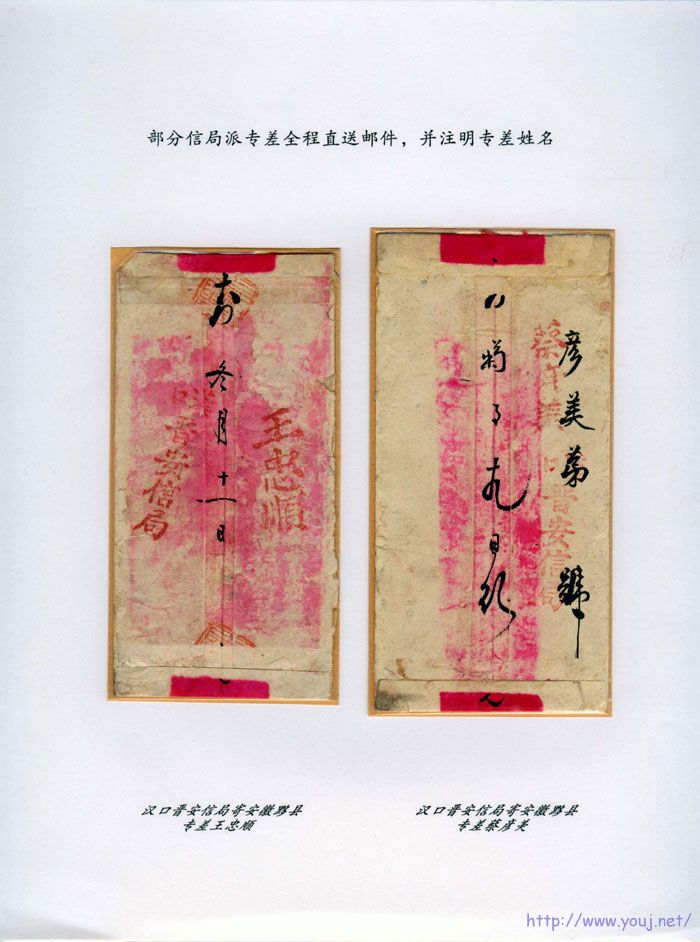 部分信局派专差全程直送邮件，并注明专差姓名
冬月十一日
王忠順
晋安信局
彦美弟
九日
晋安信局
汉口晋安信局寄安徽黟县
专差王忠顺
汉口晋安信局寄安徽黟县
专差蔡彦美
http://www.youj.net/